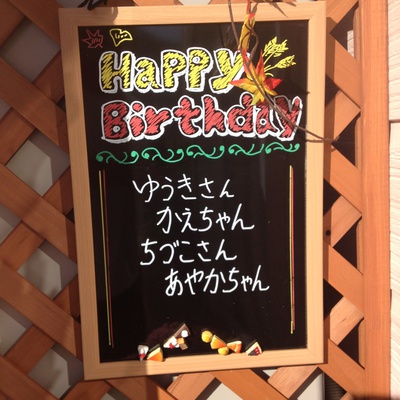 Happy
Birthday
ゆうきさん
かえちゃん
ちづこさん
あやかちゃん